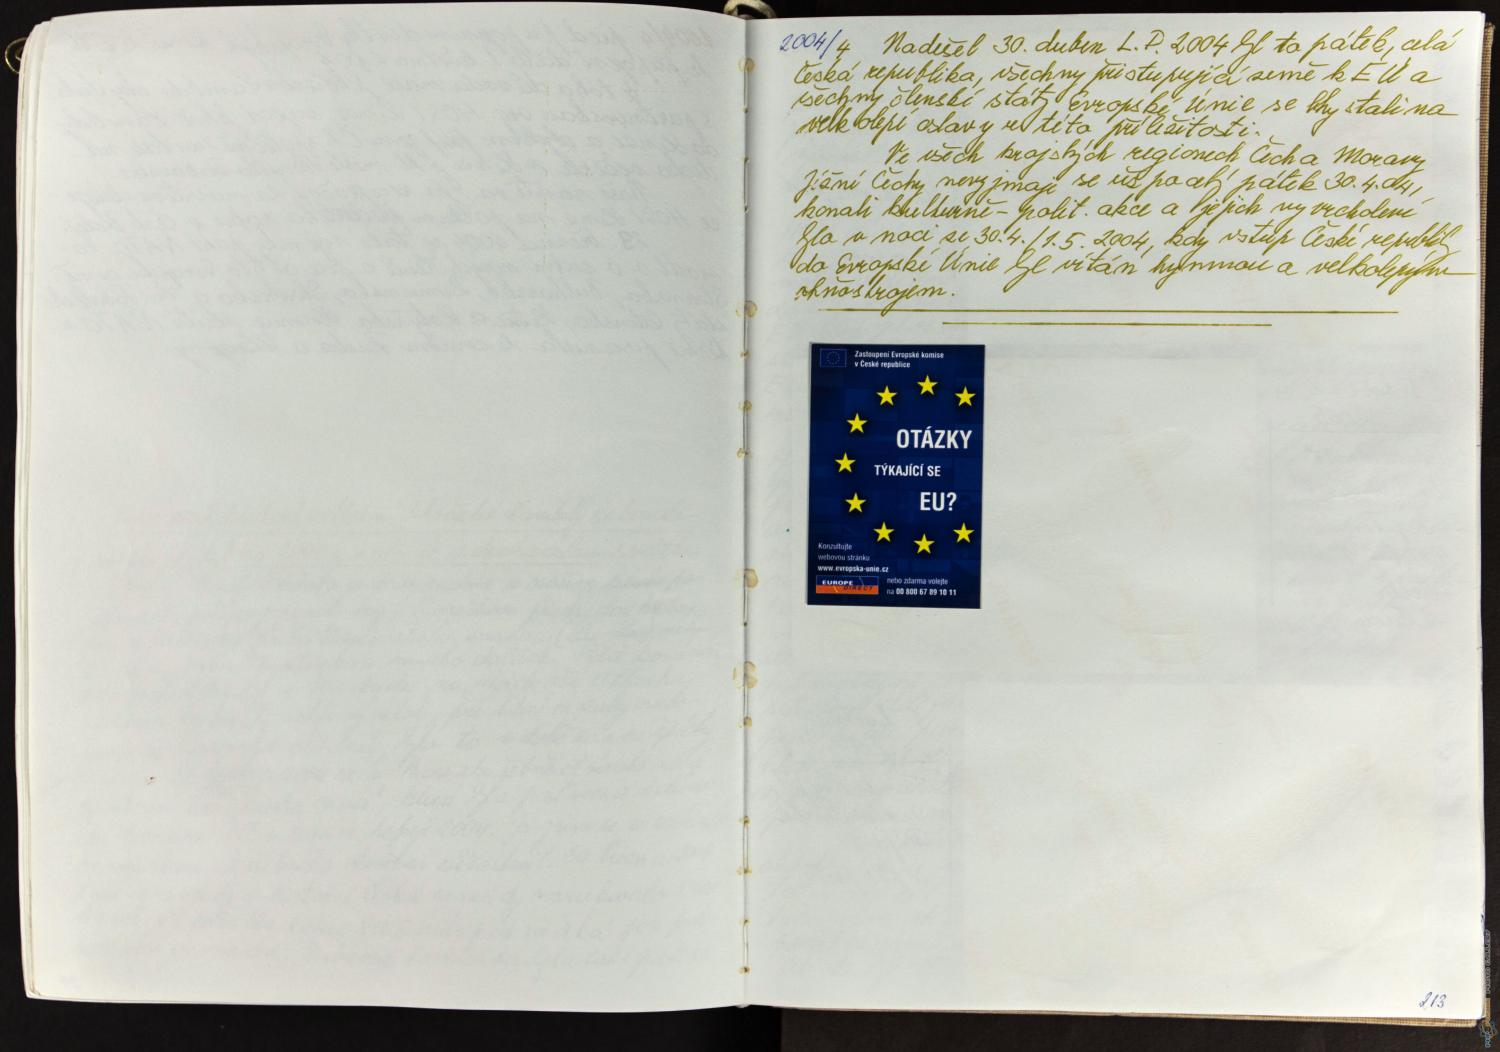 2004/4 Nadešel 30. duben L.P. 2004 byl to pátek, celá
Česká republika, všechny přistupující země k EU a
všechny členské státy Evropské Unie se chystali na
velkolepé oslavy u této příležitosti.
Ve všech krajských regionech Čech a Moravy
Jižní Čechy nevyjmaje se již po celý pátek 30.4.04,
konali kulturně-polit. akce a jejich vyvrcholení
bylo v noci ze 30.4./1.5. 2004, kdy vstup České republiky
do Evropské Unie byl vítán hymnou a velkolepým
ohňostrojem.
Zastoupení Evropské komise
v České republice
OTÁZKY
TÝKAJÍCÍ SE
EU?
Konzultujte
webovou stránku
www.evropska-unie.cz
EUROPE
DIRECT
nebo zdarma volejte
na 00 800 67 89 10 11
213